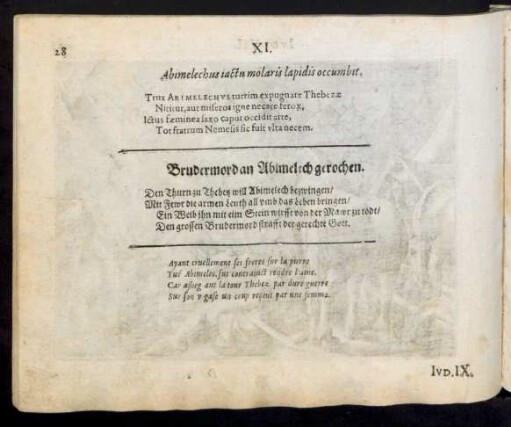 28
XI.
Abimelechus iactu molaris lapidis occumbit.
Tvm Abimelechvs turrim expugnare Thebezæ
Nititur, aut miseros igne necare ferox,
Ictus fæminea saxo caput occidit arte,
Tot fratrum Nemesis sic fuit vlta necem.
Brudermord an Abimelech gerochen.
Den Thurn zu Thebetz will Abimelech bezwingen/
Mit Fewr die armen Leuth all vmb das Leben bringen/
Ein Weib ihn mit eim Stein wirfft von der Mawr zu todt/
Den grossen Brudermord strafft der gerechte Gott.
Ayant cruellement ses freres sur la pierre
Tué Abimelec, fut contrainct rendre l'ame.
Car assieg ant la tour Thebez par dure guerre
Sur son un coup receut par une femme.
Ivd. IX.